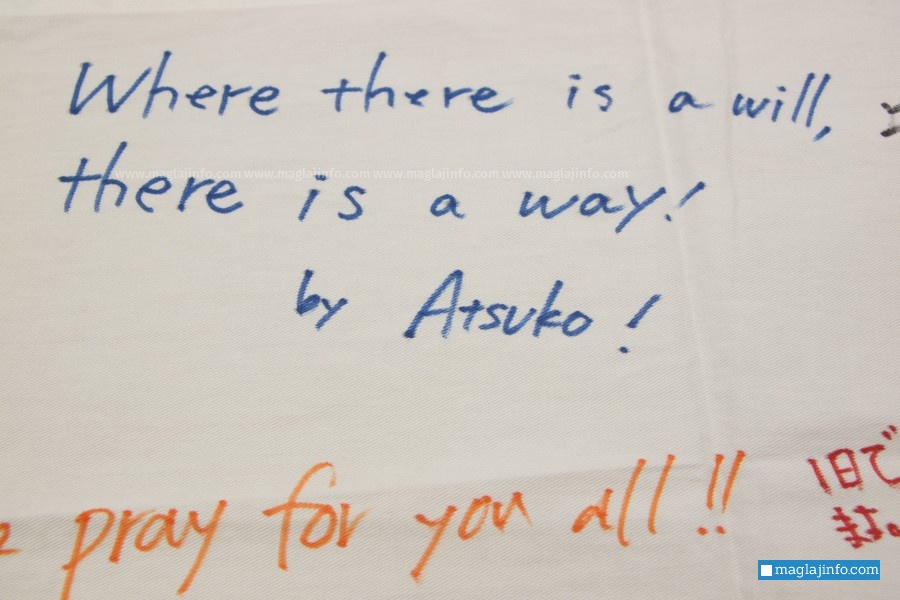 Where there is a will,
there is a way!
by Atsuko!
pray for you all!!
1日で
ます。
www.maglajinfo.com www.maglajinfo.com www.maglajinfo.com www.maglajinfo.com
maglajinfo.com